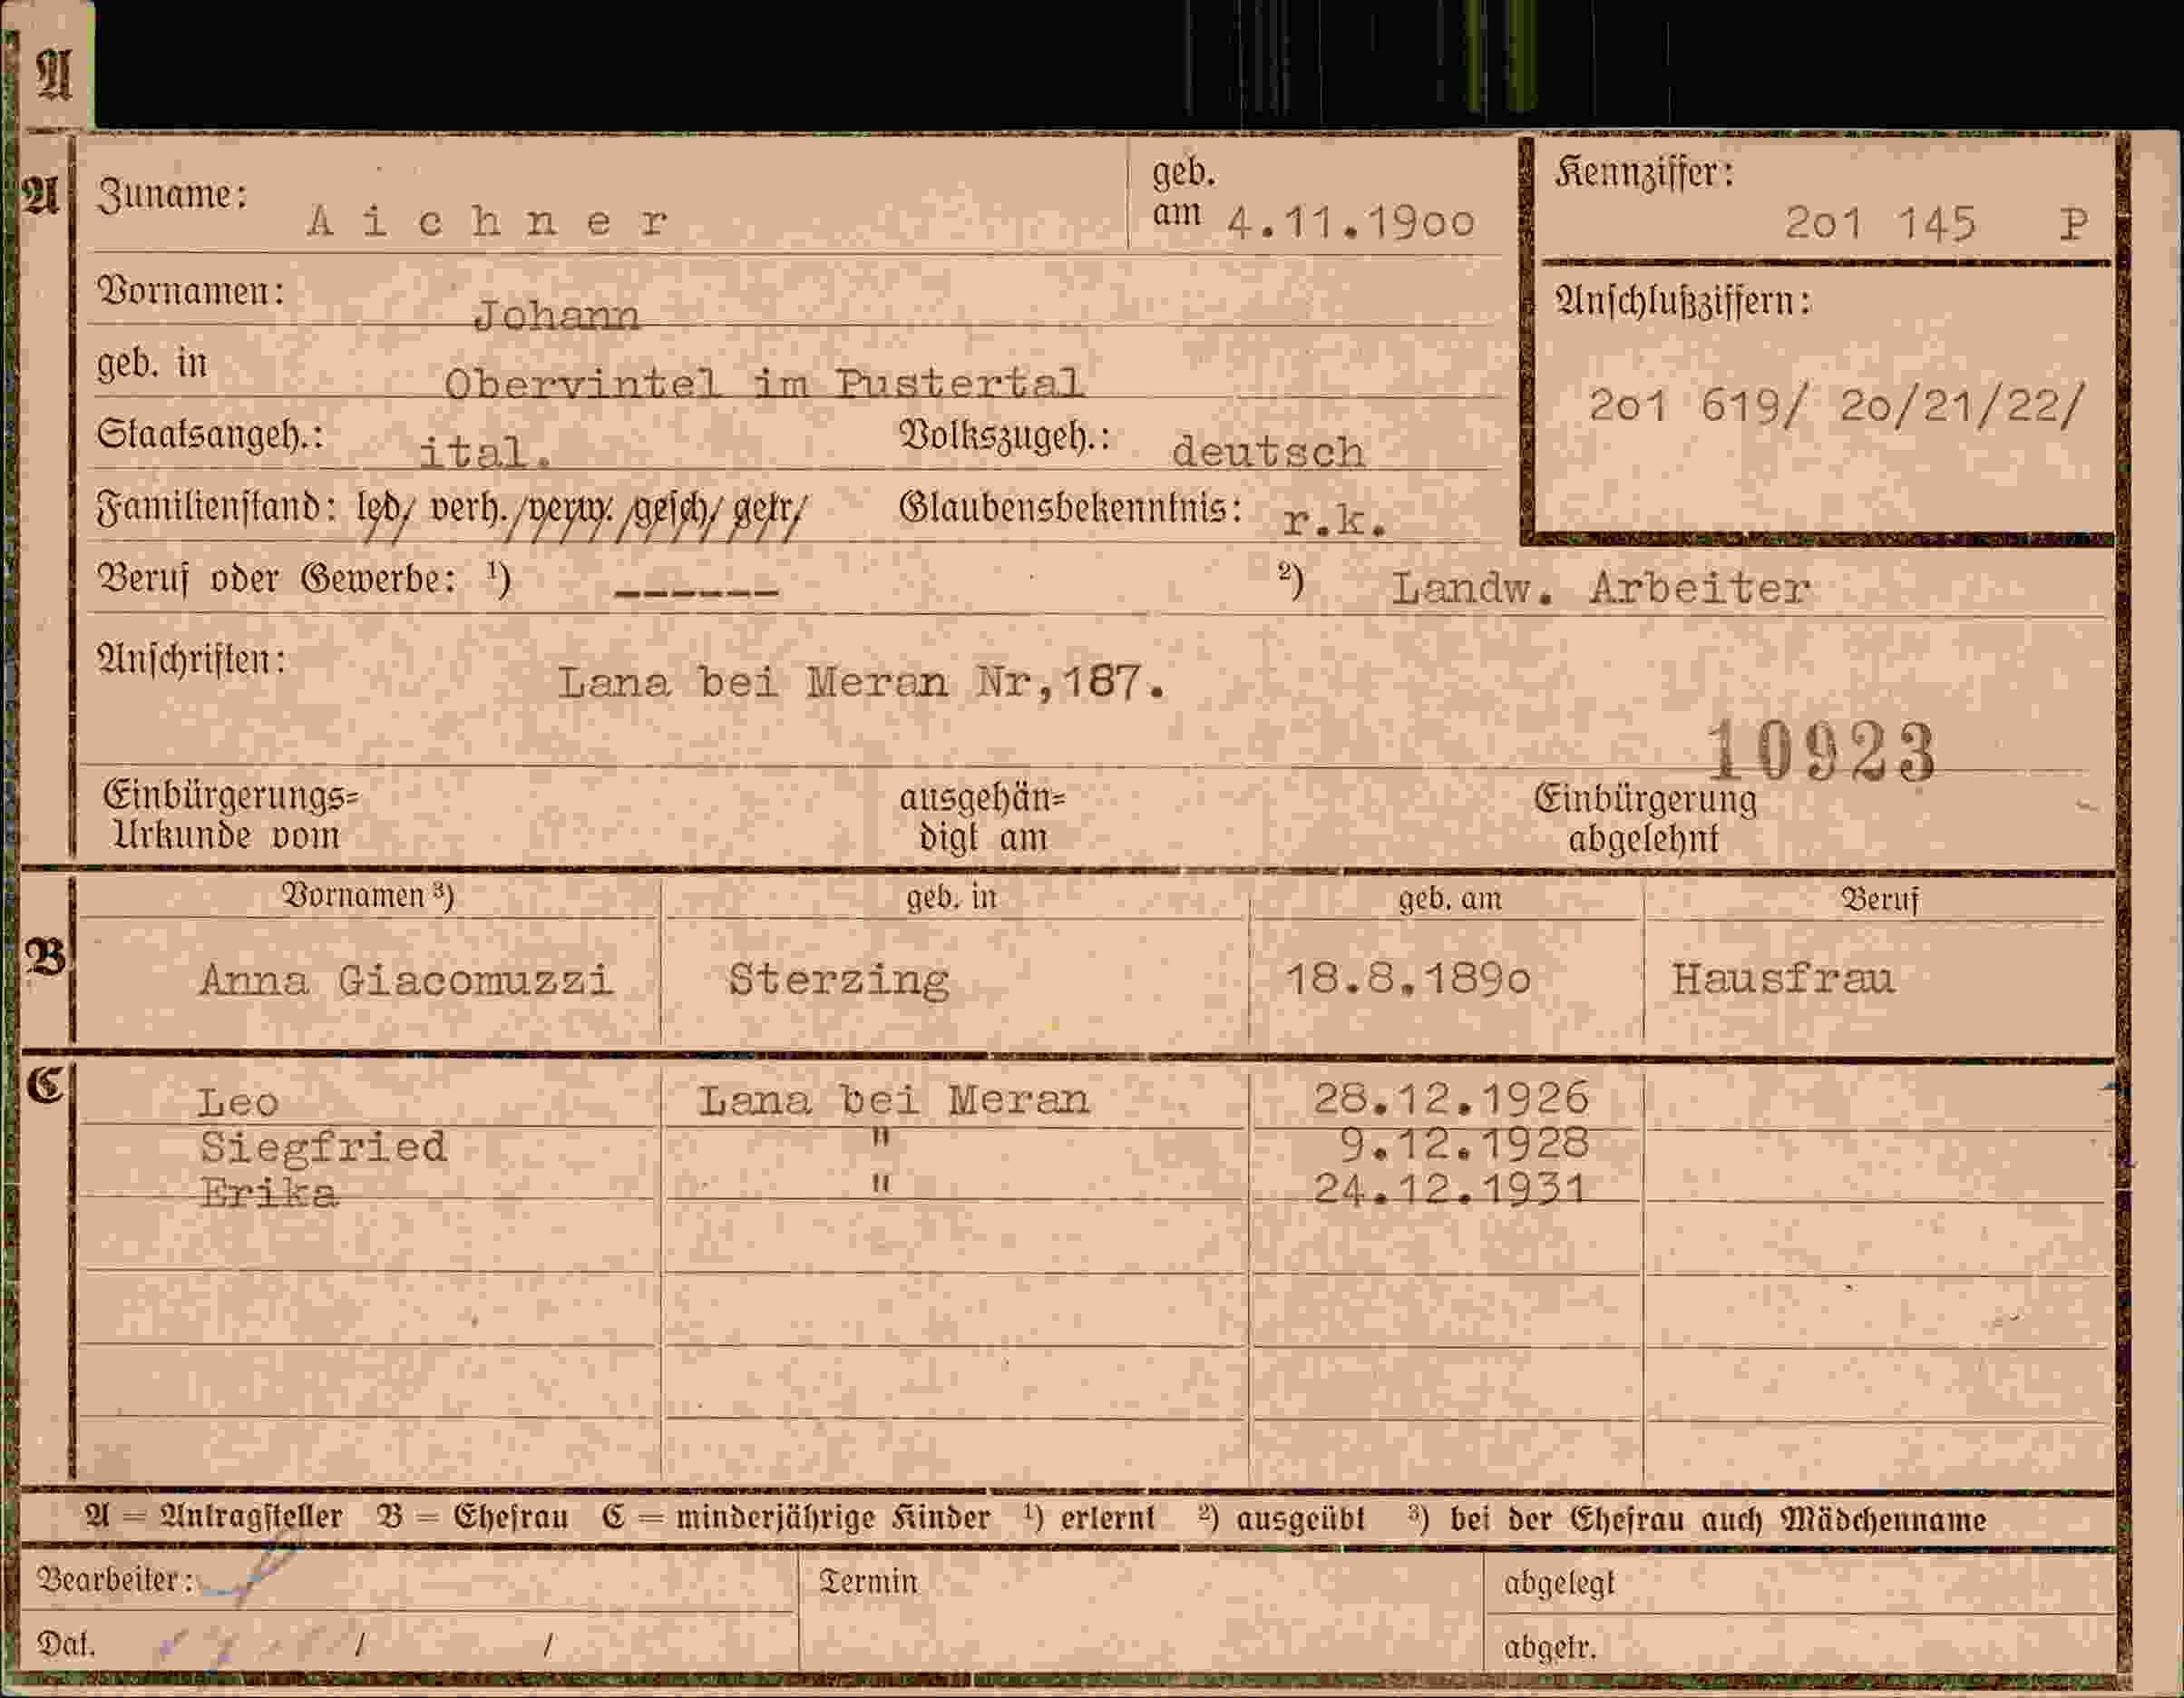 A
A Zuname: Aichner geb. am 4.11.1900 Kennziffer: 201 145 P
Vornamen: Johann Anschlußziffern:
geb. in Obervintel im Pustertal 201 619/ 20/21/22/
Staatsangeh.: ital. Volkszugeh.: deutsch
Familienstand: led/ verh./verw./gesch/ getr/ Glaubensbekenntnis: r.k.
Beruf oder Gewerbe: ¹) ------ ²) Landw. Arbeiter
Anschriften: Lana bei Meran Nr,187.
10923
Einbürgerungs= ausgehän= Einbürgerung
Urkunde vom digt am abgelehnt
Vornamen ³) geb. in geb. am Beruf
B Anna Giacomuzzi Sterzing 18.8.1890 Hausfrau
C Leo Lana bei Meran 28.12.1926
Siegfried " 9.12.1928
Erika " 24.12.1931
A = Antragsteller B = Ehefrau C = minderjährige Kinder ¹) erlernt ²) ausgeübt ³) bei der Ehefrau auch Mädchenname
Bearbeiter: Termin abgelegt
Dat. / / abgetr.